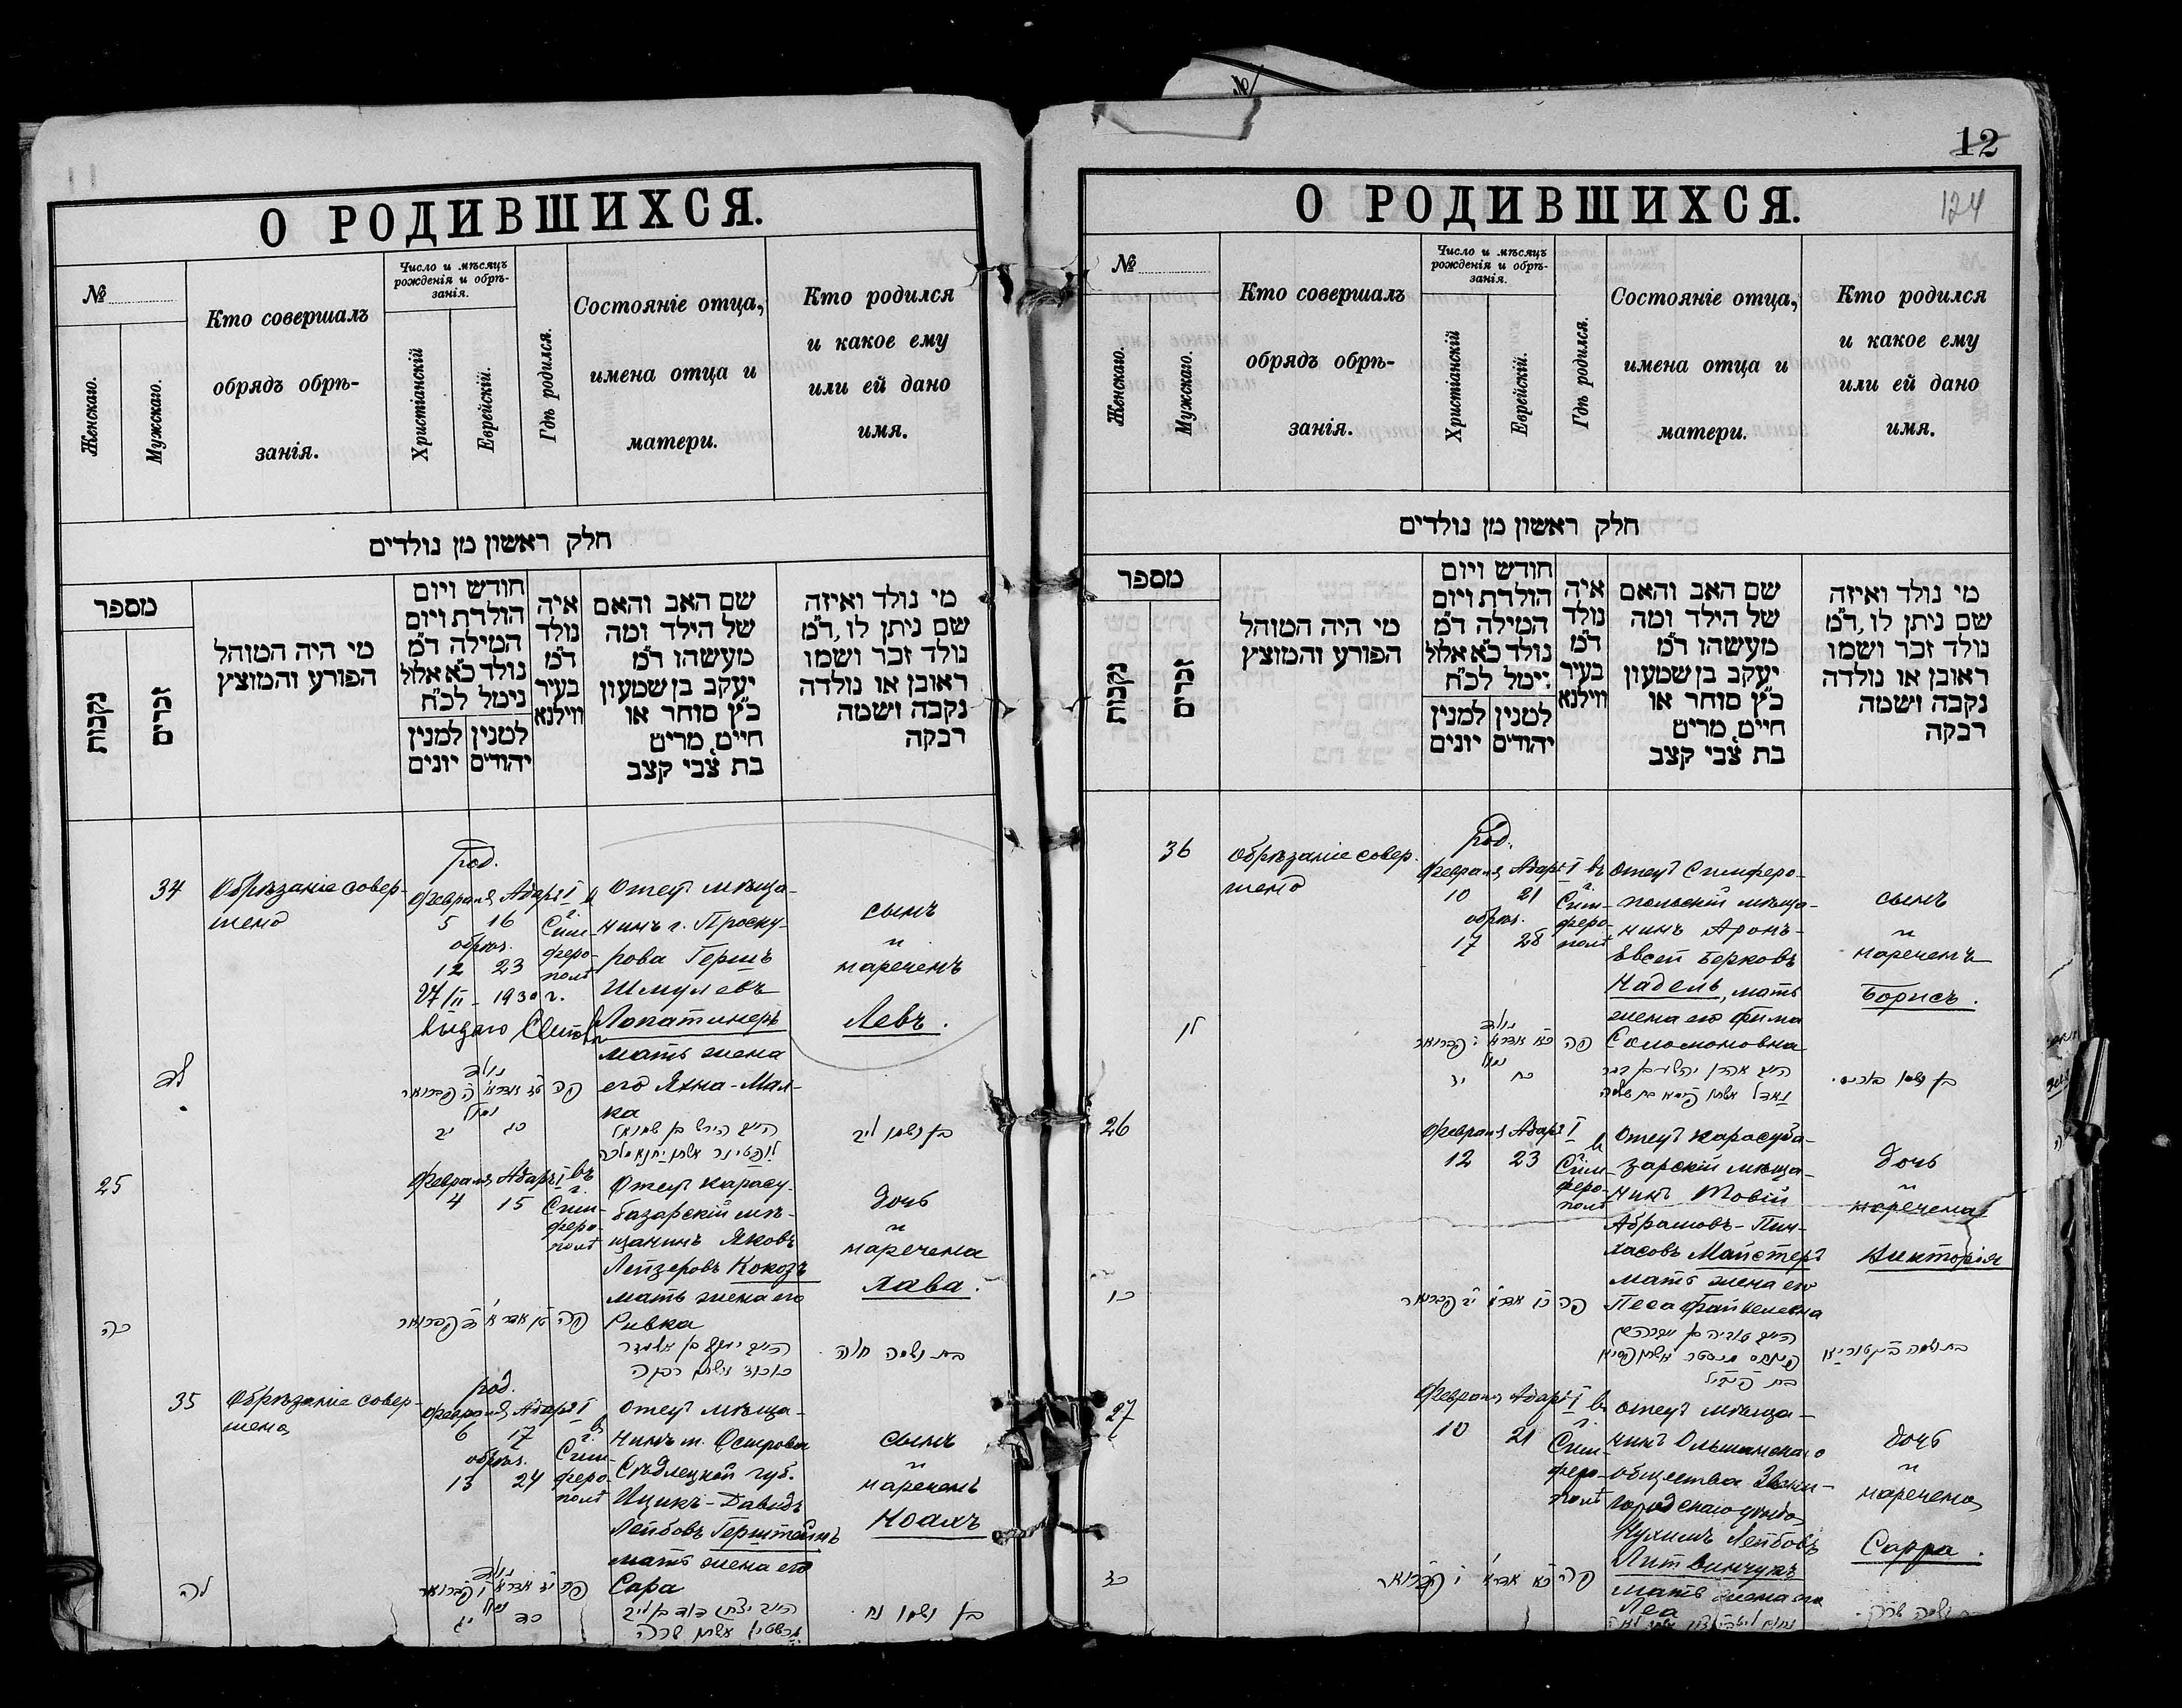 О РОДИВШИХСЯ.
№
Женскаго.
Мужскаго.
Кто совершалъ
обрядъ обрѣ-
занія.
Число и мѣсяцъ
рожденія и обрѣ-
занія.
Христіанскій
Еврейскій.
Гдѣ родился.
Состояніе отца,
имена отца и
матери.
Кто родился
и какое ему
или ей дано
имя.
חלק ראשון מן נולדים
מספר
נקבות
זכרים
מי היה המוהל
הפורע והמוצץ
חודש ויום
הולדת ויום
המילה ד״מ
נולד כ״א אלול
נימל לכ״ח
למנין למנין
יהודים יונים
איה
נולד
ד״מ
בעיר
ווילנא
שם האב והאם
של הילד ומה
מעשהו ד״מ
יעקב בן שמעון
כ״ץ סוחר או
חיים, מרים
בת צבי קצב
מי נולד ואיזה
שם ניתן לו, ד״מ
נולד זכר ושמו
ראובן או נולדה
נקבה ושמה
רבקה
34
Обрѣзаніе совер-
шено
род.
Февраля Адаръ I
5 16
обрѣз.
12 23
27/II - 1930 г.
в г.
Сим-
феро-
полѣ
Отецъ мѣща-
нинъ г. Проску-
рова Гершъ
Шмулевъ
Лопатинеръ
мать жена
его Яхна-Мал-
ка
сынъ
и
нареченъ
Левъ.
בן ושמו ליב
25
Февраля Адаръ I въ
4 15
г.
Сим-
феро-
полѣ
Отецъ Карасу-
базарскій мѣ-
щанинъ Яковъ
Лейзеровъ Кокозъ
мать жена его
Ривка
дочь
и
наречена
Хава.
כה
בת ושמה חוה
35
Обрѣзаніе совер-
шено
род.
Февраля Адаръ I
6 17
обрѣз.
13 24
в г.
Сим-
феро-
полѣ
Отецъ мѣща-
нинъ г. Острова
Сѣдлецкой губ.
Ицикъ-Давидъ
Лейбовъ Герштейнъ
мать жена его
Сара
сынъ
и
нареченъ
Ноахъ
לה
בן ושמו נח
12
124
О РОДИВШИХСЯ.
№
Женскаго.
Мужскаго.
Кто совершалъ
обрядъ обрѣ-
занія.
Число и мѣсяцъ
рожденія и обрѣ-
занія.
Христіанскій
Еврейскій.
Гдѣ родился.
Состояніе отца,
имена отца и
матери.
Кто родился
и какое ему
или ей дано
имя.
חלק ראשון מן נולדים
מספר
נקבות
זכרים
מי היה המוהל
הפורע והמוצץ
חודש ויום
הולדת ויום
המילה ד״מ
נולד כ״א אלול
נימל לכ״ח
למנין למנין
יהודים יונים
איה
נולד
ד״מ
בעיר
ווילנא
שם האב והאם
של הילד ומה
מעשהו ד״מ
יעקב בן שמעון
כ״ץ סוחר או
חיים, מרים
בת צבי קצב
מי נולד ואיזה
שם ניתן לו, ד״מ
נולד זכר ושמו
ראובן או נולדה
נקבה ושמה
רבקה
36
Обрѣзаніе совер-
шено
род.
Февраля Адаръ I въ
10 21
обрѣз.
17 28
г.
Сим-
феро-
полѣ
Отецъ Симферо-
польскій мѣща-
нинъ Аронъ-
Евсей Берковъ
Надель, мать
жена его Фима
Соломоновна
сынъ
и
нареченъ
Борисъ.
לו
26
Февраля Адаръ I
12 23
в г.
Сим-
феро-
полѣ
Отецъ Карасуба-
зарскій мѣща-
нинъ Товій
Абрамовъ-Пин-
хасовъ Майстеръ
мать жена его
Песа Файвелевна
дочь
и
наречена
Викторія
כו
27
Февраля Адаръ I въ
10 21
г.
Сим-
феро-
полѣ
Отецъ мѣща-
нинъ Ольшанскаго
общества Звени-
городскаго уѣзда
Нухимъ Лейбовъ
Литвинчукъ
мать жена его
Леа
дочь
и
наречена
Сарра.
כז